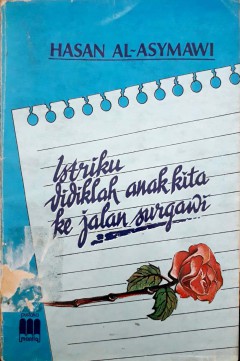 HASAN AL-ASYMAWI
Istriku
didiklah anak kita
ke jalan surgawi